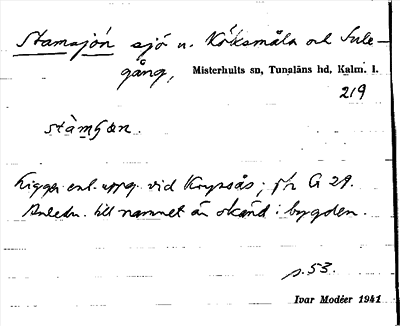 Stamsjön sjö n. Köksmåla och Sule-
gång, Misterhults sn, Tunaläns hd, Kalm. l.
219
stàmʃən.
Ligger enl. uppg. vid Krypsås; jfr G 29.
Anledn. till namnet är okänd i bygden.
s. 53.
Ivar Modéer 1941